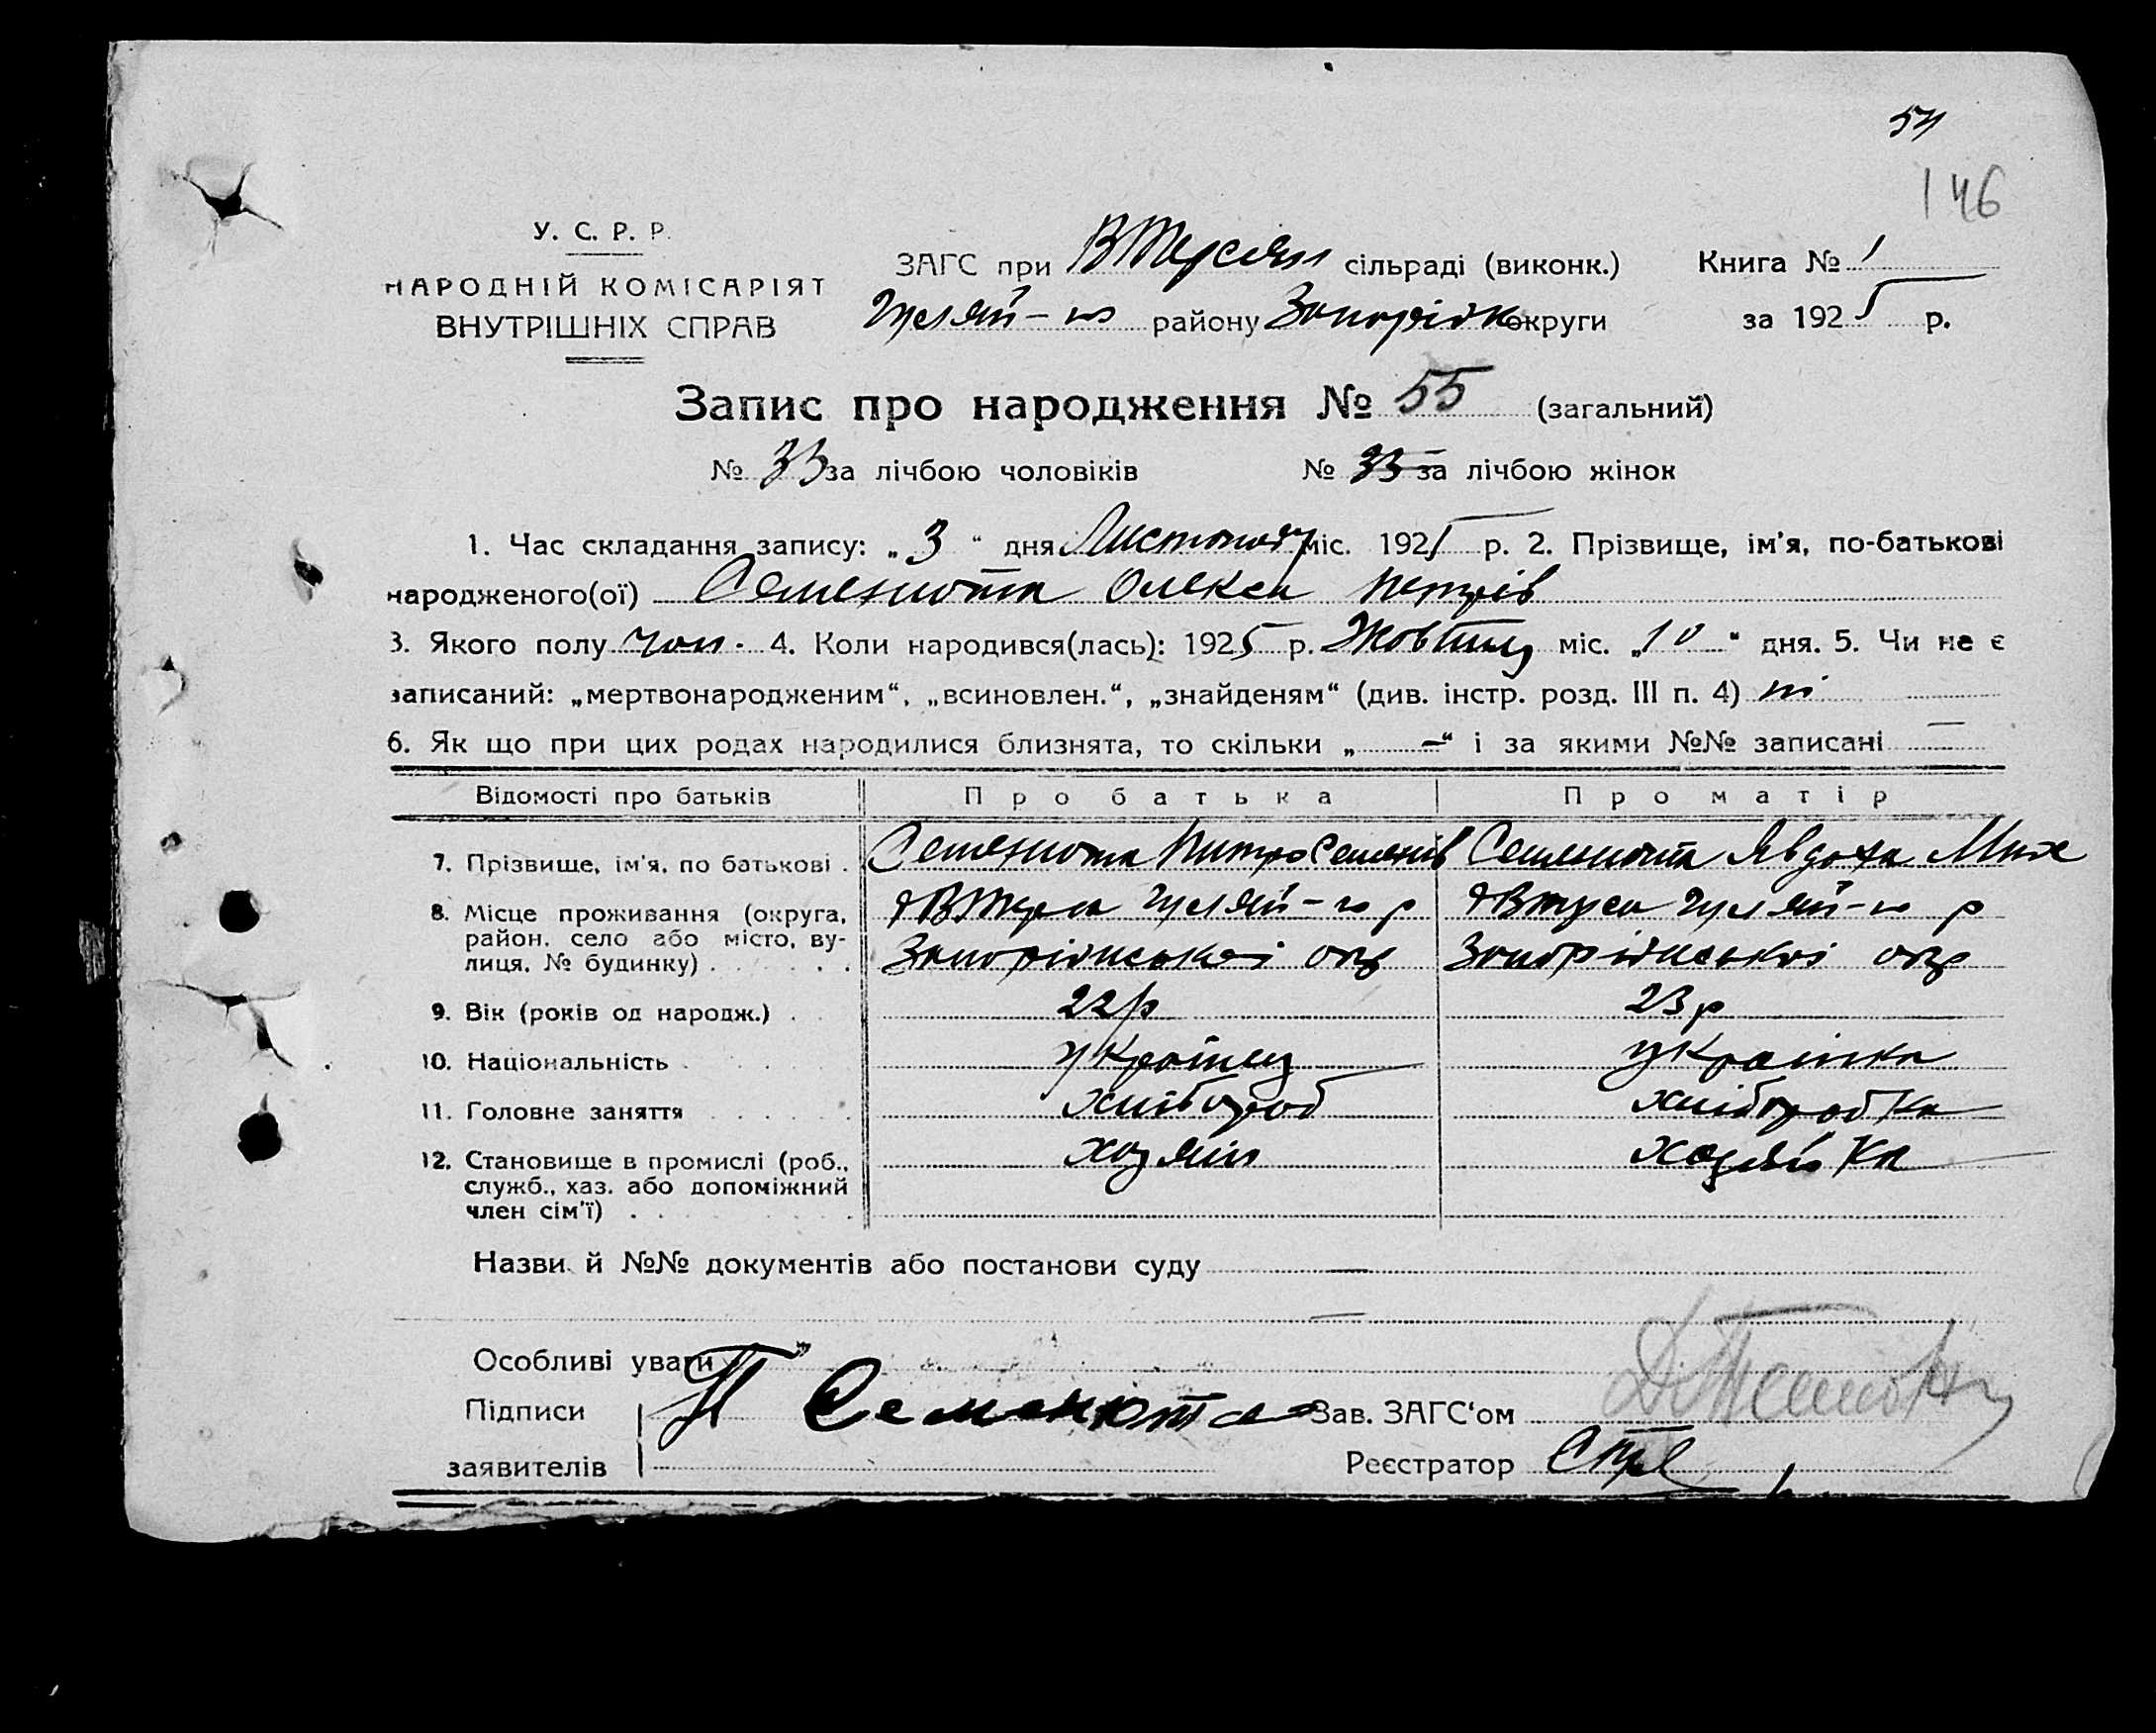 54
146
У. С. Р. Р.
НАРОДНІЙ КОМІСАРІЯТ
ВНУТРІШНІХ СПРАВ
ЗАГС при ВТерсян сільраді (виконк.) Книга № 1
Гуляй- району Запоріжк округи за 1925 р.
Запис про народження № 55 (загальний)
№ 33 за лічбою чоловіків № 33 за лічбою жінок
1. Час складання запису: „3“ дня Листопад міс. 1925 р. 2. Прізвище, ім'я, по-батькові
народженого(ої) Семенюта Олекса Петрів
3. Якого полу чол. 4. Коли народився(лась): 1925 р. Жовтня міс. „10“ дня. 5. Чи не є
записаний: „мертвонародженим“, „всиновлен.“, „знайденям“ (див. інстр. розд. III п. 4) ні
6. Як що при цих родах народилися близнята, то скільки „ — “ і за якими №№ записані —
Відомості про батьків Про батька Про матір
7. Прізвище, ім'я, по батькові . Семенюта Петро Семенів Семенюта Явдоха Мих
8. Місце проживання (округа, район, село або місто, вулиця, № будинку) . . . . . .
с ВТерса Гуляй- р с ВТерса Гуляй- р
Запоріжської окр Запоріжської окр
9. Вік (років од народж.) . 22 р 23 р
10. Національність українец українка
11. Головне заняття хлібороб хлібороб ка
12. Становище в промислі (роб., служб., хаз. або допоміжний член сім'ї) . хозяїн хозяйка
Назви й №№ документів або постанови суду —
—
Особливі уваги
Підписи П Семенюта Зав. ЗАГС'ом
заявителів Реєстратор